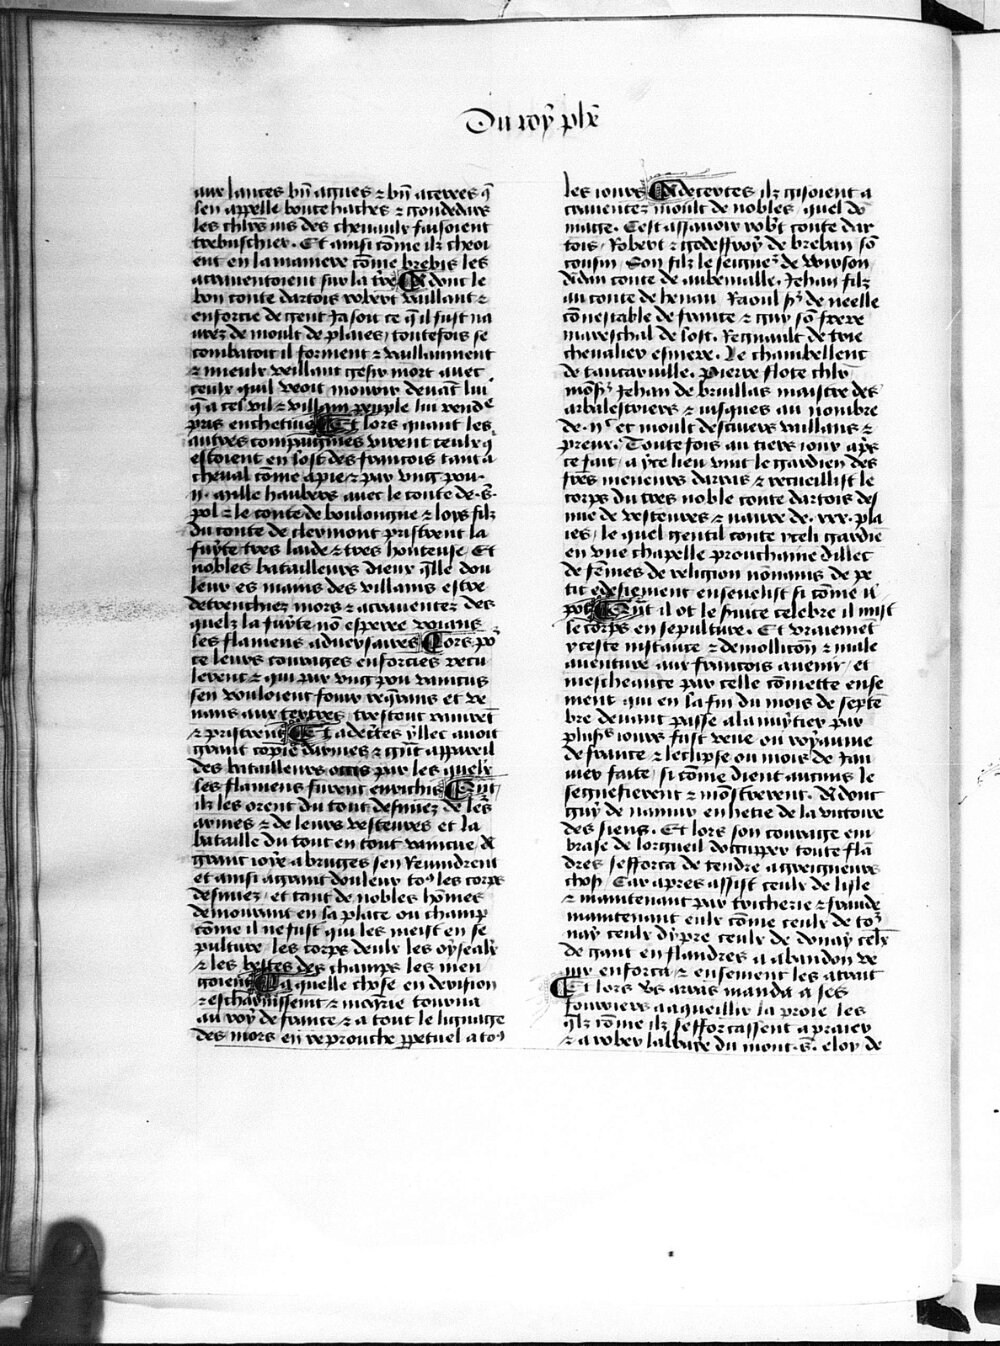 Du roy phē
aux lances bn̄ agues ⁊ bn̄ acerees q̄
len appelle boutehaches ⁊ godedars
les chlr̄s ius des cheuaulx faisoient
trebuschier. Et ainsi cōme ilz cheoi
ent en la maniere cōme brebis les
acrauentoient sur la tr̄e Adont le
bon conte dartois robert vaillant ⁊
enforcie de gent Ja soit ce q̄ il fust na
urez de moult de plaies / toutefois se
combatoit il forment ⁊ vaillanment
⁊ mieulx veillant gesir mort auec
ceulx quil veoit mourir deuāt lui
q̄ a cel vil ⁊ villain peuple lui rende
pris enchetiue Et lors quant les
autres compaignies virent ceulx q̄
estoient en lost des francois tant a
cheual cōme a pie ⁊ par vng pou
.ij. mille haubers auec le conte de .s.
pol ⁊ le conte de boulongne ⁊ loys filz
du conte de clermont pristrent la
fuyte tres laide ⁊ tres honteuse Et
nobles batailleurs dieux q̄lle dou
leur es mains des villains estre
detrenchiez mors ⁊ acrauentez des
quelz la fuyte nō esperee voians
les flamens aduersaires Lors po
ce leurs courages enforcies recu
lerent ⁊ qui par vng pou vaincus
sen vouloient fouir regnans et ve
nans aux tertres trestout
⁊ pristrent Et a dec̄tes yllec auoit
grant copie darmes ⁊ gnt̄ appareil
des batailleurs occis par les quelx
les flamens furent enrichis Qnt̄
ilz les orent du tout desnuez de les
armes ⁊ de leurs vesteures et la
bataille du tout en tout vaincue A
grant ioye a bruges sen Reuindrent
et ainsi a grant douleur toꝰ les corps
desnuez / et tant de nobles hōmes
demourant en la place ou champ
cōme il ne fust qui les meist en se
pulture / les corps deulx les oyseaulx
⁊ les bestes des champs les men
goient La quelle chose en derision
⁊ escharnissement ⁊ moq̄rie tourna
au roy de france ⁊ a tout le lignage
des mors en reprouche ꝑpetuel a toꝰ
les iours Adecertes ilz gisoient a
crauentez moult de nobles / quel do
mage. Cest assauoir rob̄t conte dar
tois / Robert ⁊ godeffroy de breban sō
cousin / Son filz le seigneꝰ de virson
Adan conte de aubemalle. Jehan filz
au conte de henau Raoul ss̄ de neelle
cōnestable de france ⁊ guy sō frere
mareschal de lost. Regnault de trie
cheualier esmere. Le chambellent
de tancaruille. Pierre flote chlr̄
monss̄ Jehan de bruillas maistre des
arbalestriers ⁊ iusques au nombre
de .ijᶜ. et moult descuiers vaillans ⁊
preux. Toutefois au tiers iour apr̄s
ce fait / a yce lieu vint le gardien des
fr̄es meneurs darras ⁊ recueillist le
corps du tres noble conte dartois des
nue de vesteures ⁊ naure de .xxx. pla
ies / le quel gentil conte yceli gardie
en vne chapelle prouchaine dillec
de fēmes de religion nōmains de pe
tit edefiement enseuelist si cōme il
pot Qnt̄ il ot le seruice celebre il mist
le corps en sepulture. Et vraiemēt
yceste instance ⁊ demoliciōn ⁊ male
auenture aux francois auenir / et
mescheance par celle cōmette ense
ment / qui en la fin du mois de septē
bre deuant passe a la nuytier par
plusꝰs iours fust veue ou royaume
de france ⁊ leclipse ou mois de Jan
uier faite / si cōme dient aucuns le
segnefierent ⁊ mōstrerent. Adont
guy de namur enhetie de la victoire
des siens. Et lors son courage em
brase de lorgueil doccupper toute flā
dres sefforca de tendre a greigneurs
chos̄ Car apres assist ceulx de lisle
⁊ maintenant par tricherie ⁊ fraude
maintenant eulx cōme ceulx de toꝰ
nay ceulx dypre ceulx de douay celx
de gant en flandres a abandon ve
nir enforca ⁊ ensement les atrait
Et lors vs̄ arras manda a ses
courriers a aqueillir la proie les
q̄lz cōme ilz sefforcassent a praier
⁊ a rober labbaye du mont .s. eloy de